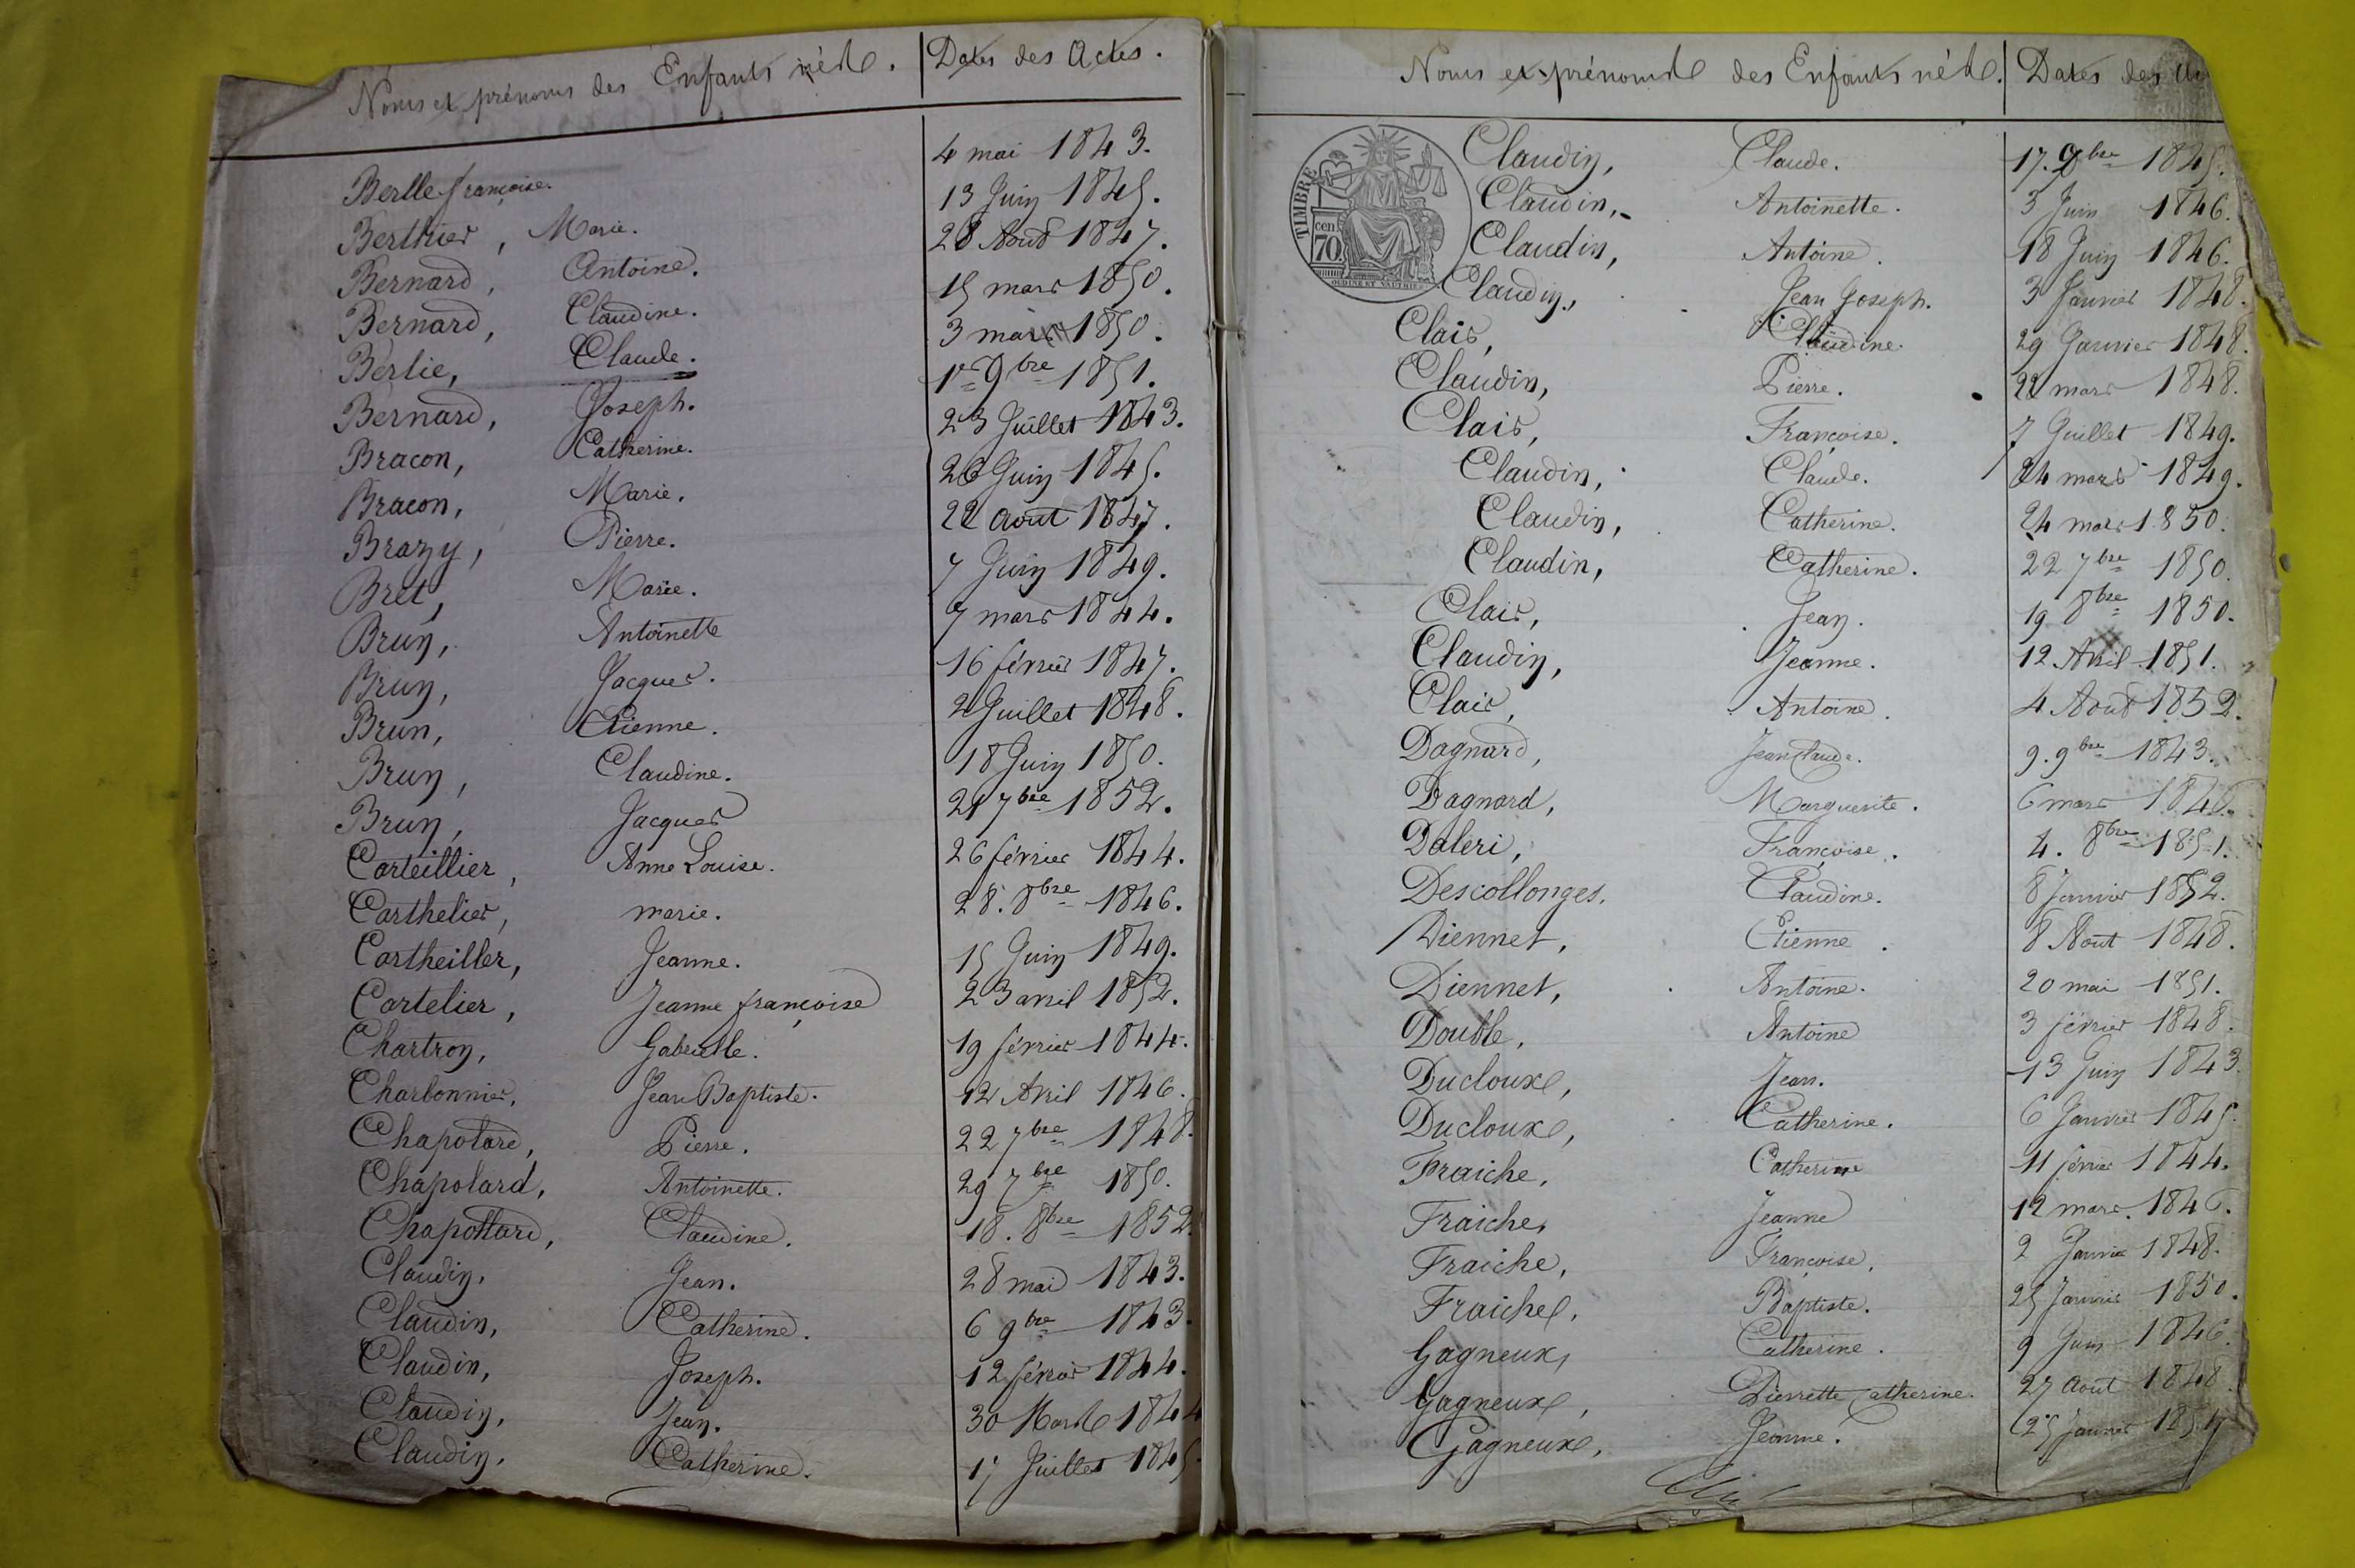 Noms et prénoms des Enfants nés. Dates des Actes.
Berlle françoise. 4 mai 1843.
Berthier, Marie. 13 Juin 1845.
Bernard, Antoine. 28 Août 1847.
Bernard, Claudine. 15 mars 1850.
Berlie, Claude. 3 mars 1850.
Bernard, Joseph. 1er 9bre 1851.
Bracon, Catherine. 23 Juillet 1843.
Bracon, Marie. 26 Juin 1845.
Brazy, Pierre. 22 août 1847.
Bret, Marie. 7 Juin 1849.
Brun, Antoinette 7 mars 1844.
Brun, Jacques. 16 février 1847.
Brun, Etienne. 2 Juillet 1848.
Brun, Claudine. 18 Juin 1850.
Brun, Jacques 21 7bre 1852.
Carteillier, Anne Louise. 26 février 1844.
Carthelier, marie. 28. 8bre 1846.
Cartheiller, Jeanne. 15 Juin 1849.
Cartelier, Jeanne françoise 23 avril 1852.
Chartron, Gabrielle. 19 février 1844.
Charbonnier, Jean Baptiste. 12 Avril 1846.
Chapolard, Pierre. 22 7bre 1848.
Chapolard, Antoinette. 29 7bre 1850.
Chapottard, Claudine. 18. 8bre 1852.
Claudin, Jean. 28 mai 1843.
Claudin, Catherine. 6 9bre 1843.
Claudin, Joseph. 12 février 1844.
Claudin, Jean. 30 Mars 1844
Claudin, Catherine. 17 Juillet 1845.
Noms et prénoms des Enfants nés. Dates des
TIMBRE
70 cen
OUDINÉ ET VAUTHIER
Claudin, Claude. 17. 9bre 1845.
Claudin, Antoinette. 3 Juin 1846.
Claudin, Antoine. 18 Juin 1846.
Claudin, Jean Joseph. 3 Janvier 1848.
Clair, Claudine. 29 Janvier 1848.
Claudin, Pierre. 22 mars 1848.
Clair, Françoise. 7 Juillet 1849.
Claudin, Claude. 24 mars 1849.
Claudin, Catherine. 24 mars 1850.
Claudin, Catherine. 22 7bre 1850.
Clair, Jean. 19 8bre 1850.
Claudin, Jeanne. 12 Avril 1851.
Clair, Antoine. 4 Août 1852.
Dagnard, Jean Claude. 9. 9bre 1843.
Dagnard, Marguerite. 6 mars 1846.
Daleri, Françoise. 4. 8bre 1851.
Descollonges, Claudine. 8 Janvier 1852.
Diennet, Etienne. 8 Août 1848.
Diennet, Antoine. 20 mai 1851.
Double, Antoine 3 février 1848.
Ducloux, Jean. 13 Juin 1843.
Ducloux, Catherine. 6 Janvier 1845.
Fraiche, Catherine 11 février 1844.
Fraiche, Jeanne 12 mars. 1846.
Fraiche, Françoise. 2 Janvier 1848.
Fraiche, Baptiste. 25 Janvier 1850.
Gagneux, Catherine. 9 Juin 1846.
Gagneux, Pierrette Catherine. 27 août 1848
Gagneux, Jeanne. 25 Janvier